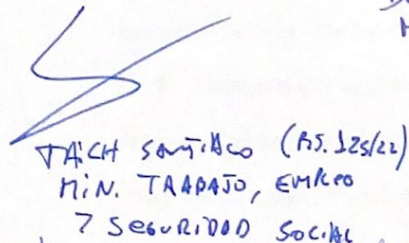 TAICH SANTIAGO (RS. 125/22)
MIN. TRABAJO, EMPLEO
Y SEGURIDAD SOCIAL